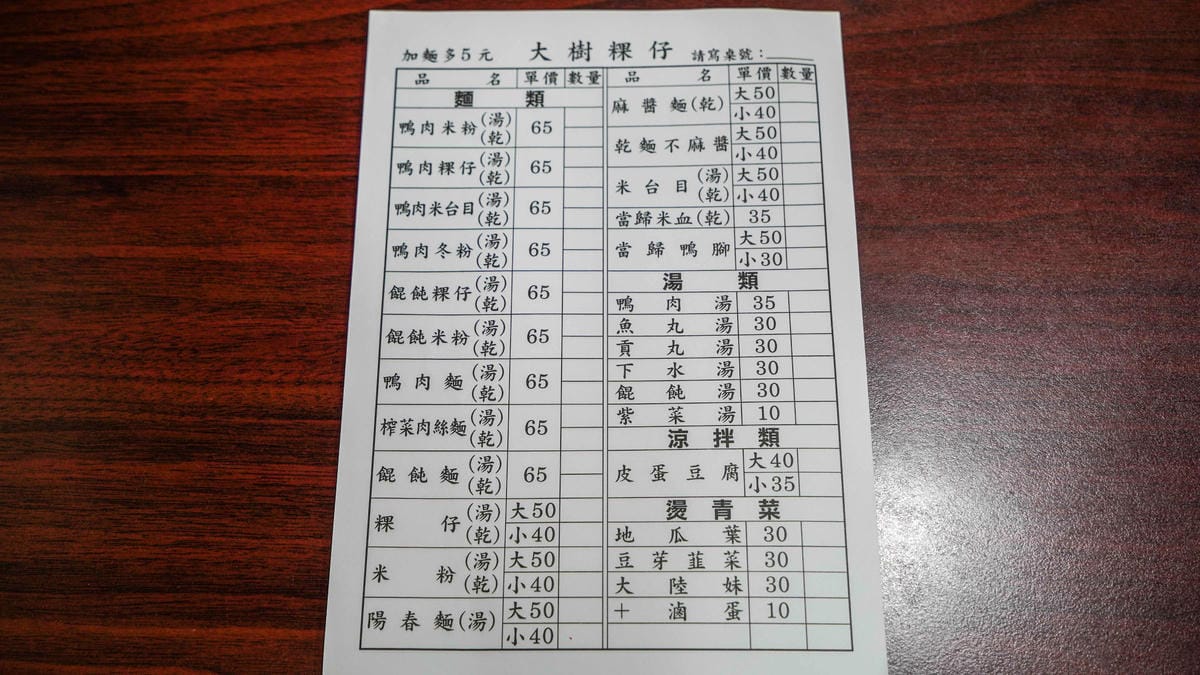 加麵多5元 大樹粿仔 請寫桌號：
品名 單價 數量
麵類
鴨肉米粉(湯)(乾) 65
鴨肉粿仔(湯)(乾) 65
鴨肉米台目(湯)(乾) 65
鴨肉冬粉(湯)(乾) 65
餛飩粿仔(湯)(乾) 65
餛飩米粉(湯)(乾) 65
鴨肉麵(湯)(乾) 65
榨菜肉絲麵(湯)(乾) 65
餛飩麵(湯)(乾) 65
粿仔(湯)(乾) 大50 小40
米粉(湯)(乾) 大50 小40
陽春麵(湯) 大50 小40
品名 單價 數量
麻醬麵(乾) 大50 小40
乾麵不麻醬 大50 小40
米台目(湯)(乾) 大50 小40
當歸米血(乾) 35
當歸鴨腳 大50 小30
湯類
鴨肉湯 35
魚丸湯 30
貢丸湯 30
下水湯 30
餛飩湯 30
紫菜湯 10
涼拌類
皮蛋豆腐 大40 小35
燙青菜
地瓜葉 30
豆芽韮菜 30
大陸妹 30
＋滷蛋 10